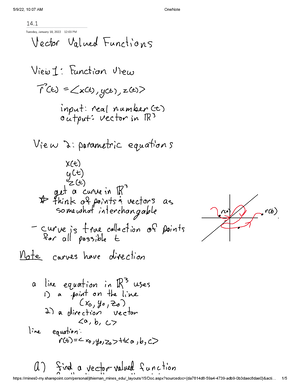 5/9/22, 10:07 AM OneNote
14.1
Tuesday, January 18, 2022 12:03 PM
Vector Valued Functions
View 1: Function view
r(t) = <x(t), y(t), z(t)>
input: real number (t)
output: vector in ℝ³
View 2: parametric equations
x(t)
y(t)
z(t)
get a curve in ℝ³
* think of points & vectors as
somewhat interchangable
- curve is true collection of points
for all possible t
Note curves have direction
a line equation in ℝ³ uses
1) a point on the line
(x₀, y₀, z₀)
2) a direction vector
<a, b, c>
line equation:
r(t) = <x₀, y₀, z₀> + t<a, b, c>
a) find a vector valued function
1/5